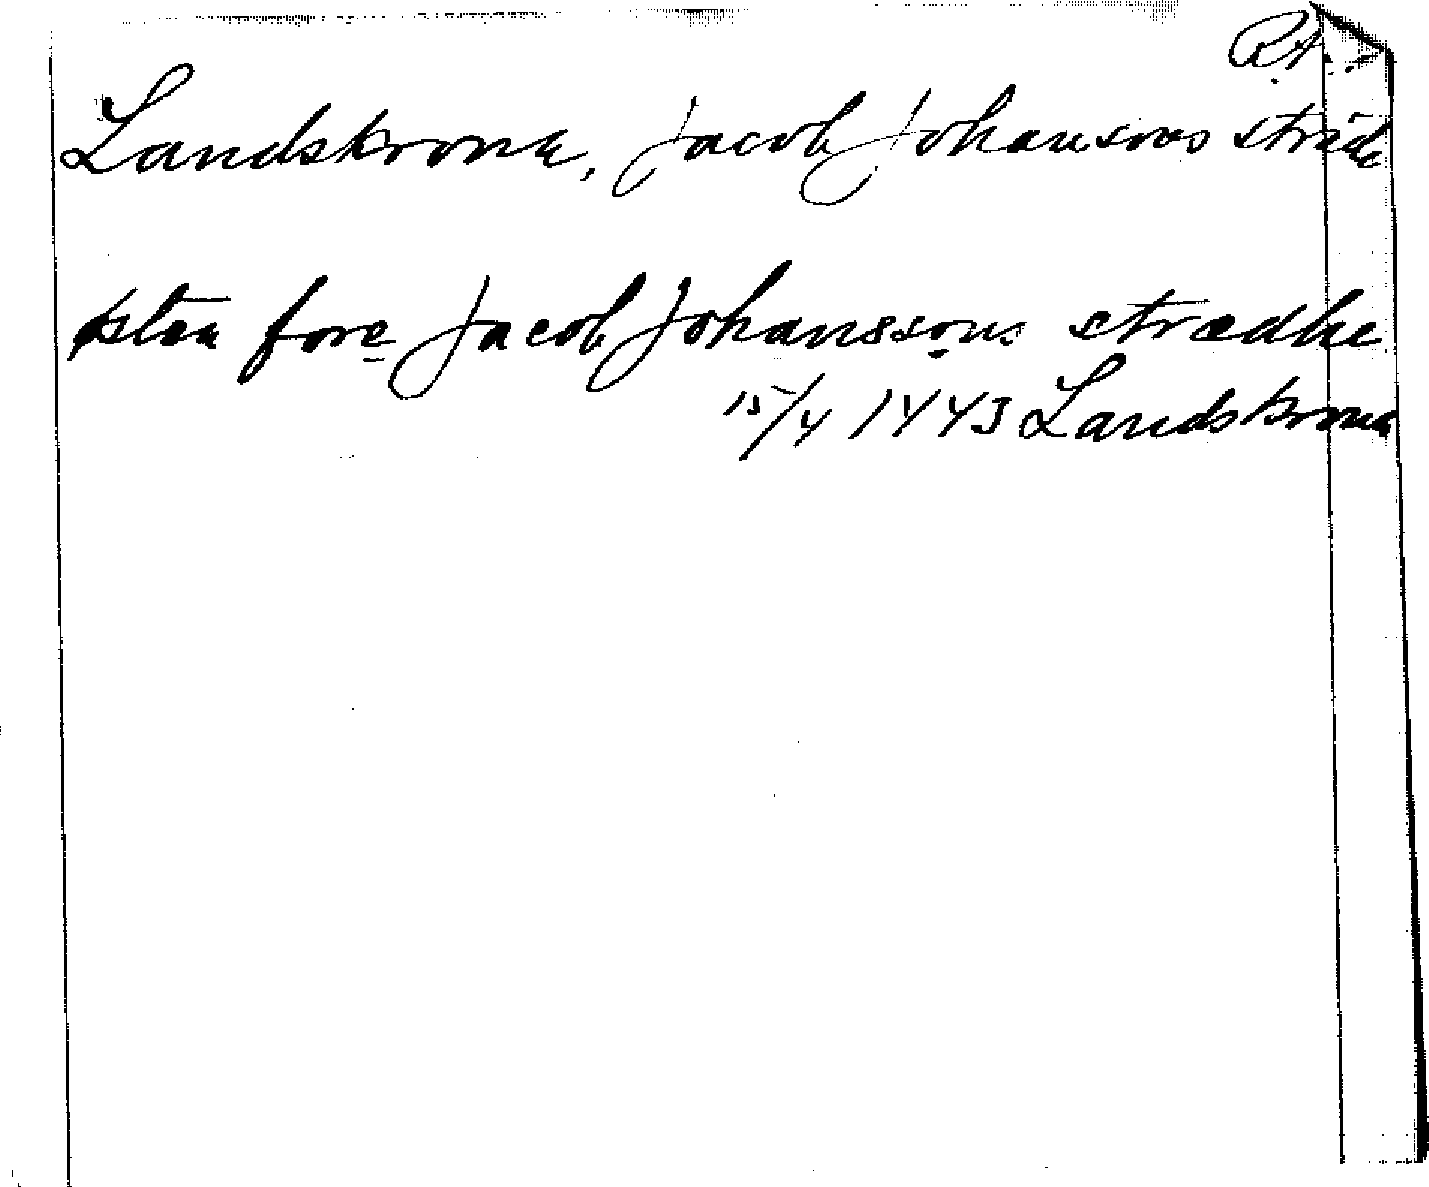 R.A.
Landskrona, Jacob Johansons stræde
sten fore Jacob Johanssons strædhe
15/4 1443 Landskrona